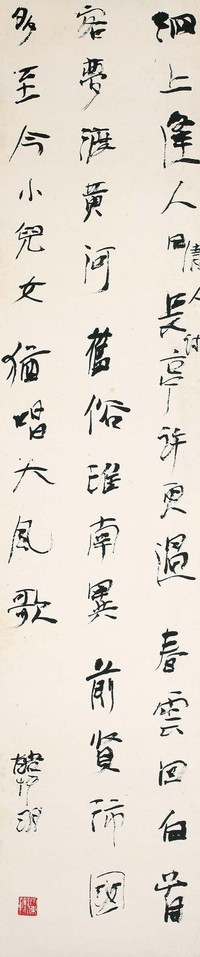 泗上逢人日長亭許更過春雲回白首
清人詩
客夢渡黃河舊俗淮南異前賢沛國
多至今小兒女猶唱大風歌